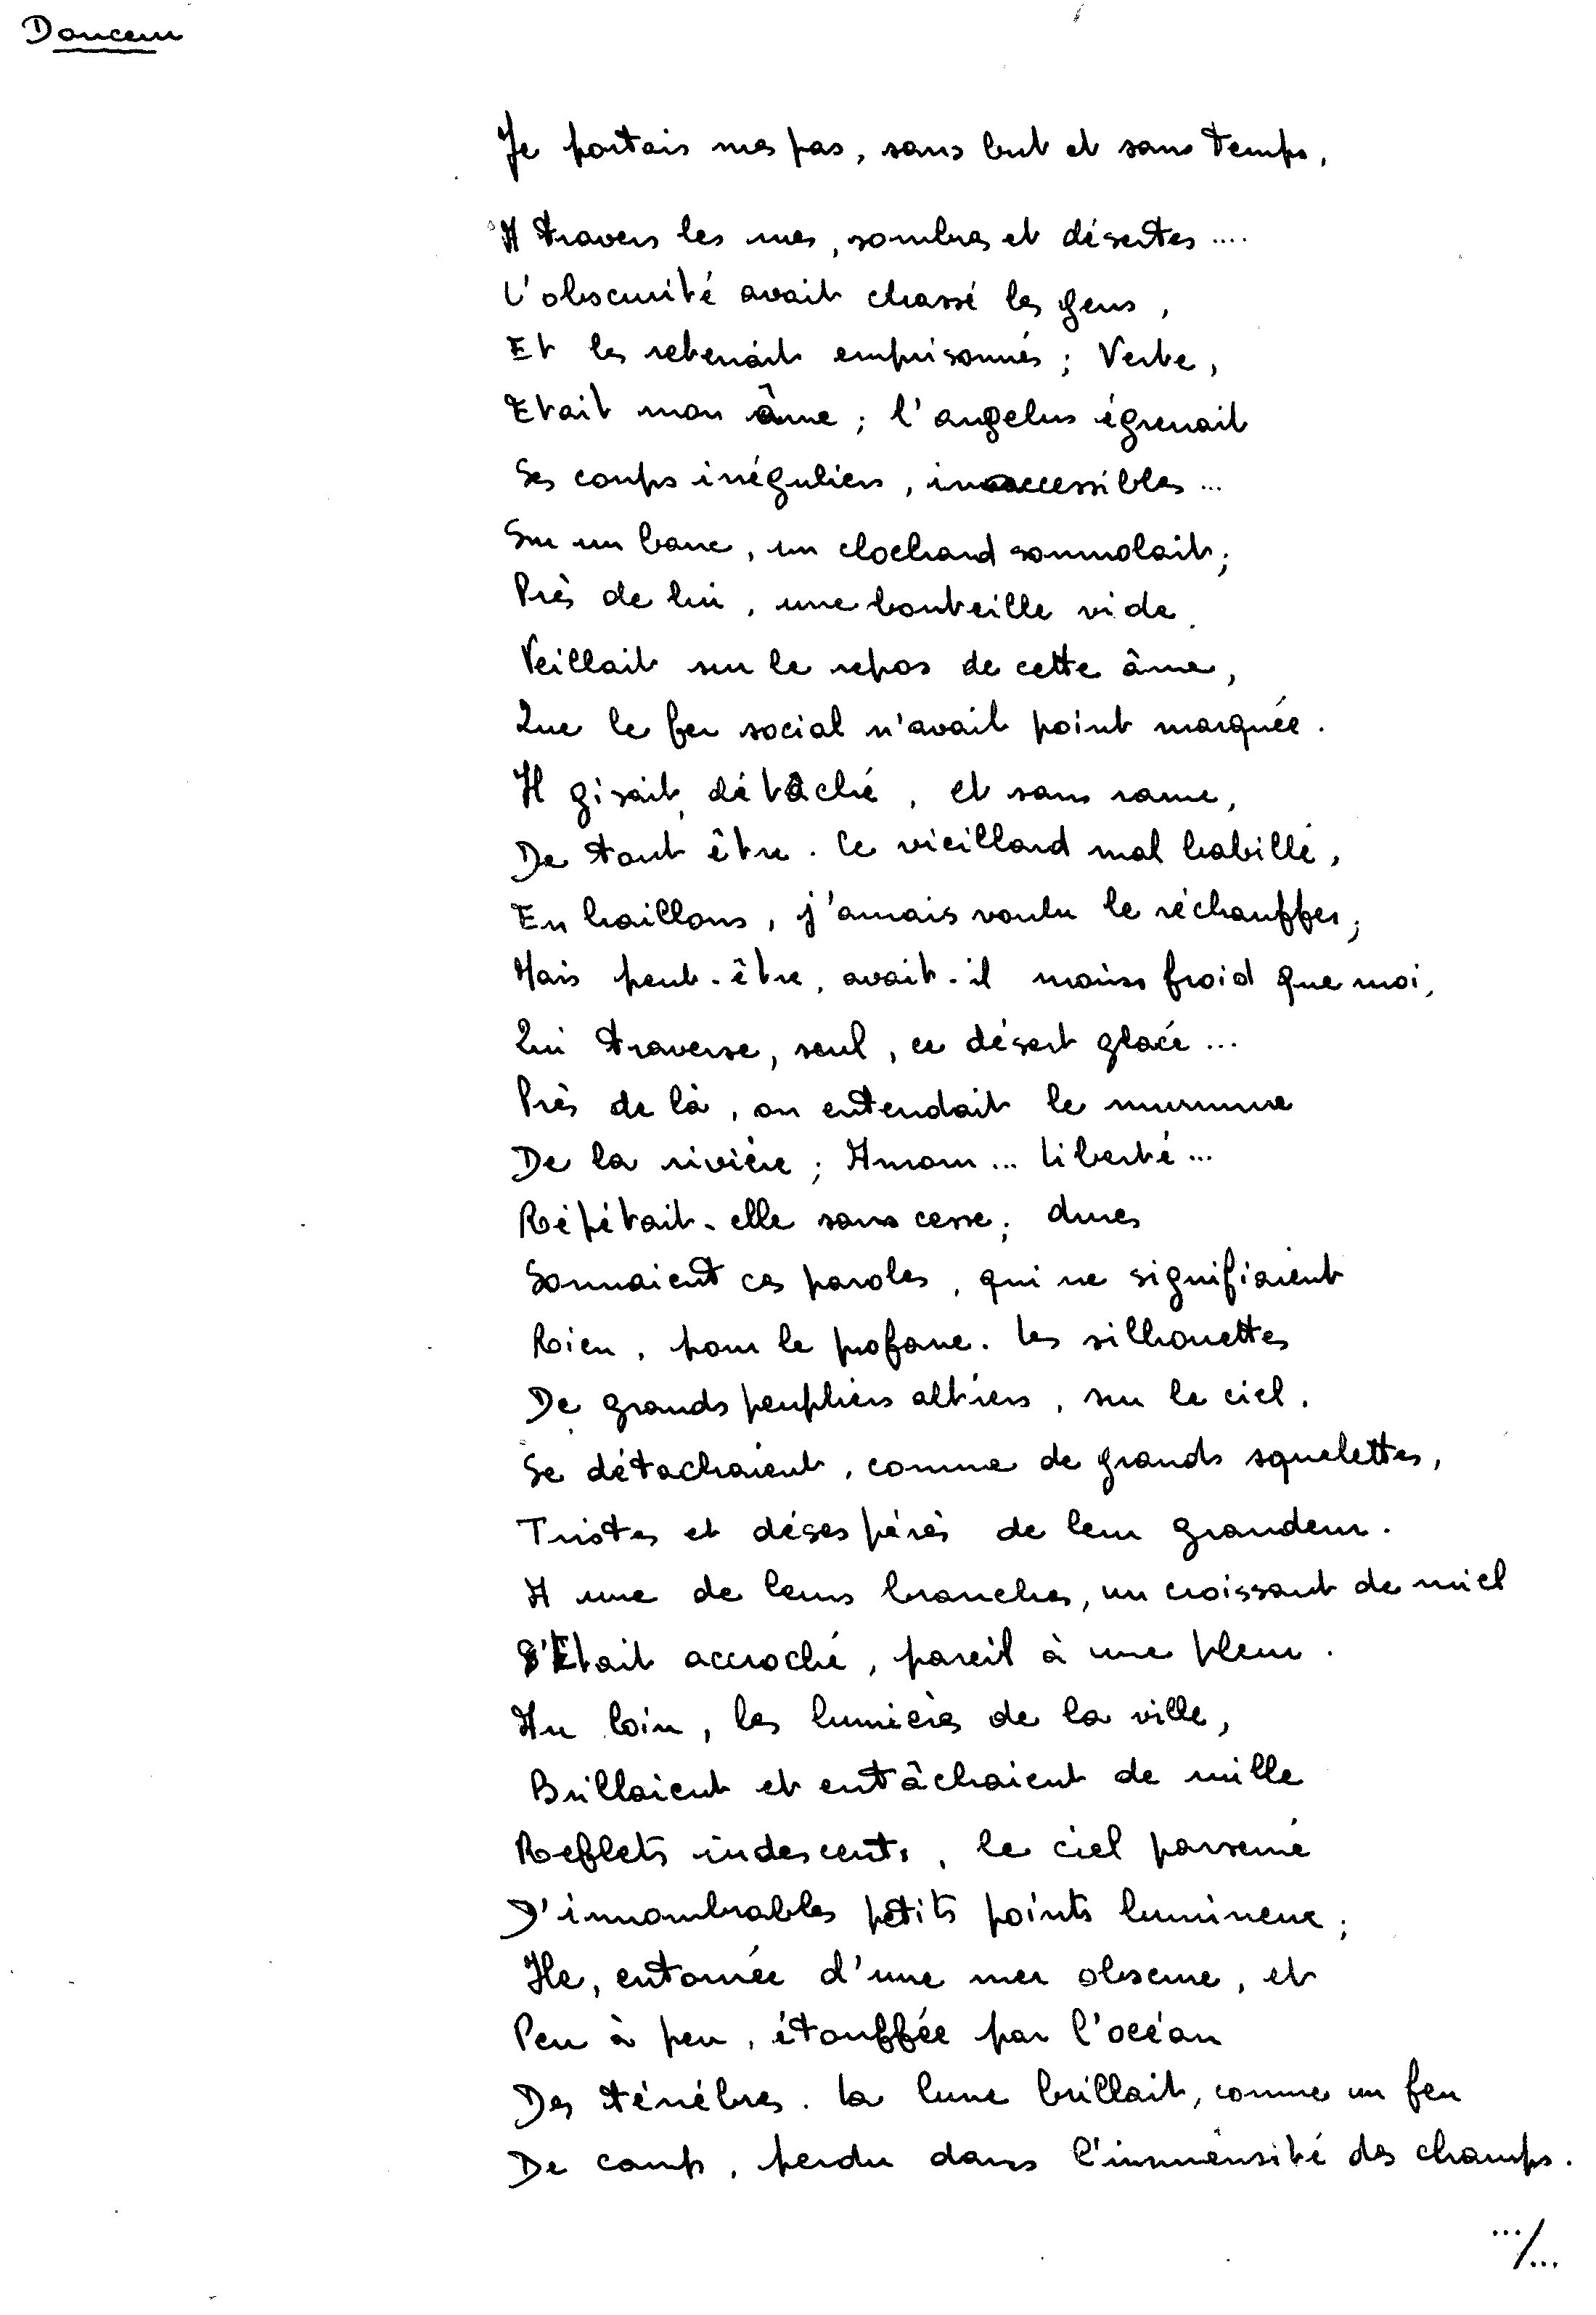 Douceur
Je portais mes pas, sans but et sans temps,
A travers les rues, sombres et désertes ....
L'obscurité avait chassé les gens,
Et les retenait emprisonnés ; Verte,
Etait mon âme ; l'angelus égrenait
Ses coups irréguliers, inaccessibles ...
Sur un banc, un clochard sommolait ;
Près de lui, une bouteille vide
Veillait sur le repos de cette âme,
Que le feu social n'avait point marquée.
Il gisait, détaché, et sans rame,
De tout être. Ce vieillard mal habillé,
En haillons, j'aurais voulu le réchauffer ;
Mais peut-être, avait-il moins froid que moi,
Qui traverse, seul, ce désert glacé ...
Près de là, on entendait le murmure
De la rivière ; Amour ... Liberté ...
Répétait-elle sans cesse ; dures
Sonnaient ces paroles, qui ne signifiaient
Rien, pour le profane. Les silhouettes
De grands peupliers altiers, sur le ciel,
Se détachaient, comme de grands squelettes,
Tristes et désespérés de leur grandeur.
A une de leurs branches, un croissant de miel
S'Etait accroché, pareil à une fleur.
Au loin, les lumières de la ville,
Brillaient et entâchaient de mille
Reflets iridescents, le ciel parsemé
D'innombrables petits points lumineux ;
Ile, entourée d'une mer obscure, et
Peu à peu, étouffée par l'océan
Des ténèbres. La lune brillait, comme un feu
De camp, perdu dans l'immensité des champs.
.../...